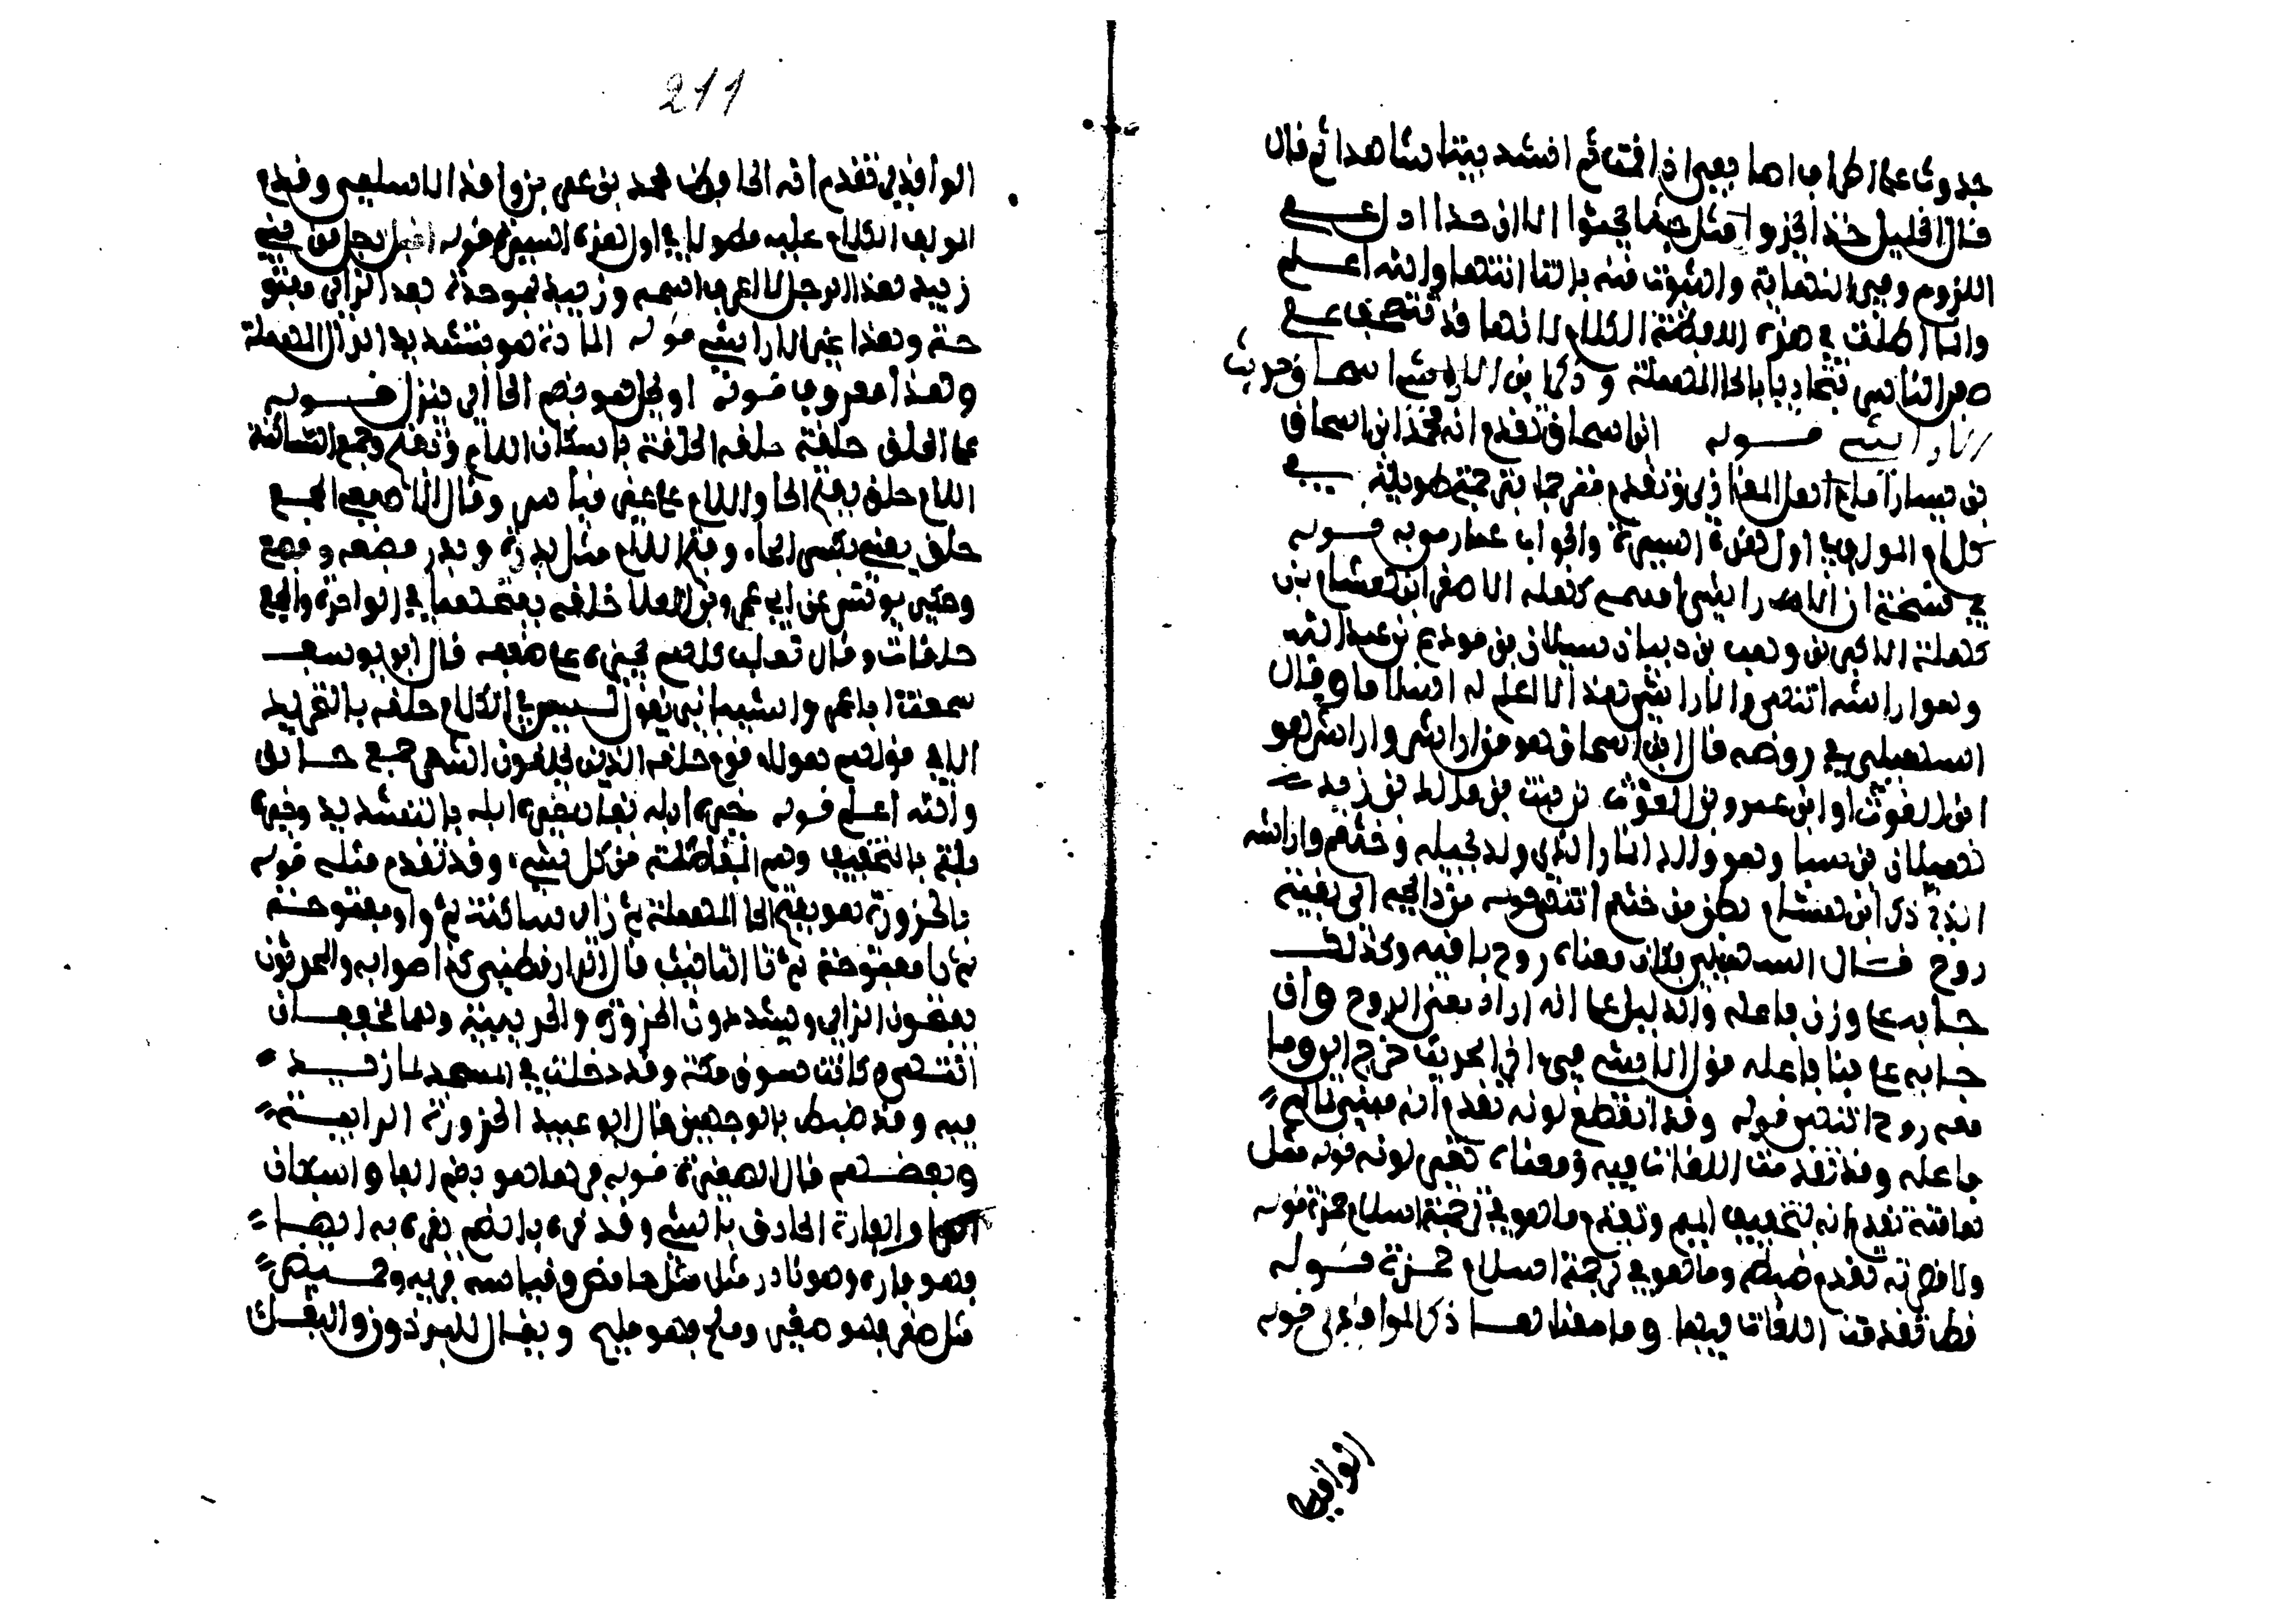 فقال الخليل حذا الجزوا مثل جثا يجثوا الا ان حذا ادل على
اللزوم وهي النهاية والثبوت منه بالثا انتهى والله اعلم
وانما اطلت في هذه اللفظة الكلام لانها قد تتصحف على
بعض الناس بالحا المهملة وذكر ابن اسحاق حديث
الاراشي قوله ابن اسحاق تقدم انه محمد ابن اسحاق
بن يسار امام اهل المغازي وتقدم مترجما بترجمة طويلة في
كلام المولف اول هذه السيرة والجواب عما رمي به قوله
في نسخة ان الاراشي اسمه كهلة الاصغر ابن عصام بن
كهلة الاكبر بن وهب بن ذبيان بن سيلان بن مودع بن عبد الله
وهو اراشه انتهى والاراشي هذا لا اعلم له اسلاما وقال
السهيلي في روضه قال ابن اسحاق هو من اراش واراش هو
ابن الغوث او ابن عمرو بن الغوث بن نبت بن مالك بن زيد
بن كهلان بن سبا وهو والد انمار الذي ولد بجيلة وخثعم واراشه
الذي ذكر ابن هشام بطن من خثعم انتهى قوله من رايحه اي بقية
روح فقال السهيلي بلان معناه روح باقية وكذلك
جا به على وزن فاعله والدليل على انه اراد معنى الروح وان
جا به على بنا فاعله قول الاراشي في اخر الحديث خرج الي وما
معه روحه انتهى قوله وقد انتقع لونه تقدم انه مبني لما لم
فاعله وقد تقدمت اللغات فيه ومعناه تغير لونه قوله
هامته تقدم انه بتخفيف الميم وتقدم ما هو في ترجمة اسلام حمزة قوله
ولا قصرته تقدم ضبطه وما هو في ترجمة اسلام حمزة قوله
قط تقدمت اللغات فيها وما معناها ذكر الواقدي قوله
الواقدي
211
الواقدي تقدم انه الحافظ محمد بن عمر بن واقد الاسلمي وقدم
المولف الكلام عليه مطولا في اول هذه السيرة قوله اقبل رجل من بني
زبيد هذا الرجل لا اعرف اسمه وزبيد بموحدة بعد الزاي مفتو
حة وهذا غير الاراشي قوله المادة هو بتشديد الدال المهملة
وهذا معروف قوله او يحل هو بضم الحا اي ينزل قوله
على الحلق حلقة حلقه الحلقة باسكان اللام وتفتح وجمع الساكنة
اللام حلق بفتح الحا واللام على غير قياس وقال الاصمعي الجمع
حلق يعني بكسر الحاء وفتح اللام مثل بدرة وبدر وقصعة وقصع
وحكى يونس عن ابي عمرو بن العلا حلقه بفتحهما في الواحدة والجمع
حلقات وقال ثعلب كلهم يجيزه على ضعفه قال ابو يوسف
سمعت ابا عمرو الشيباني يقول ليس في الكلام حلقه بالتحريك
الا في قولهم هولا قوم حلقه الذين يحلقون الشعر جمع حالق
والله اعلم قوله خيرة ابله يقال خيرة ابله بالتشديد وخيرة
بالتخفيف وهم الفاضلة من كل شيء وقد تقدم مثله قوله
بالحزورة هو بفتح الحا المهملة ثم زاي ساكنة ثم واو مفتوحة
ثم را مفتوحة ثم تا التانيث قال الدارقطني كذا صوابه والمحدثون
يفتحون الزاي ويشددون الحزورة والحديبية وهما مخففان
انتهى وكانت سوق مكة وقد دخلت في المسجد لما زيد
فيه وقد ضبط بالوجهين قال ابو عبيد الحزورة الرابية
وبعضهم قال الصغيرة قوله فرها هو بضم الفا واسكان
الها والفاره الحاذق بالشيء وقد فره بالضم يفره به الها
فهو فاره وهو نادر مثل حامض وقياسه فريه وحميض
مثل صغر فهو صغير وملح فهو مليح ويقال للبرذون والبغل